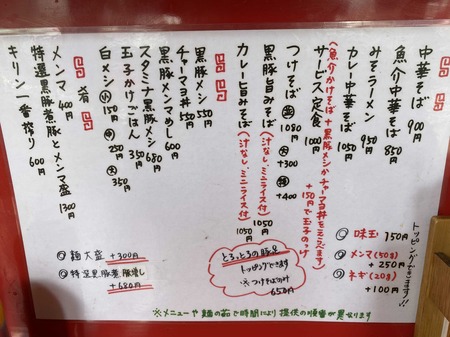 中華そば 900円
魚介中華そば 850円
みそラーメン 950円
カレー中華そば 1050円
サービス定食 1000円
(魚介かけそば+黒豚メシかチャーマヨ丼をえらべます)
+150円で玉子のっけ
つけそば 並 1080 大 +300 特 +400
黒豚旨みそば (汁なし、ミニライス付) 1050円
カレー旨みそば (汁なし、ミニライス付) 1050円
黒豚メシ 550円
チャーマヨ丼 550円
黒豚メンマめし 600円
スタミナ黒豚メシ 680円
玉子かけごはん 350円
白メシ 小 150円 中 250円 大 350円
肴
メンマ 400円
特選黒豚煮豚とメンマ盛 1300円
キリン一番搾り 600円
トッピングできます!!
味玉 150円
メンマ(50g) +250円
ネギ(20g) +100円
とろっとろの豚足
トッピングできます
※つけそばのみ
650円
麺大盛 +300円
特定黒豚煮豚増し +680円
※メニューや麺の茹で時間により提供の順番が異なります